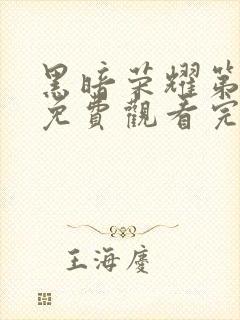 黑暗荣耀第
免費觀看完
王海慶